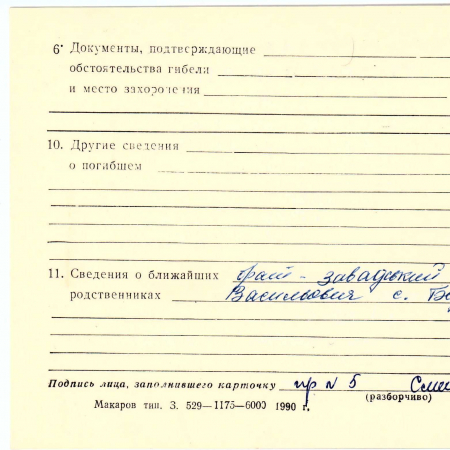 6. Документы, подтверждающие
обстоятельства гибели
и место захоронения
10. Другие сведения
о погибшем
11. Сведения о ближайших брат - завадський
родственниках Васильович с.
Подпись лица, заполнившего карточку пр N 5
(разборчиво)
Макаров тип. З. 529—1175—6000 1990 г.